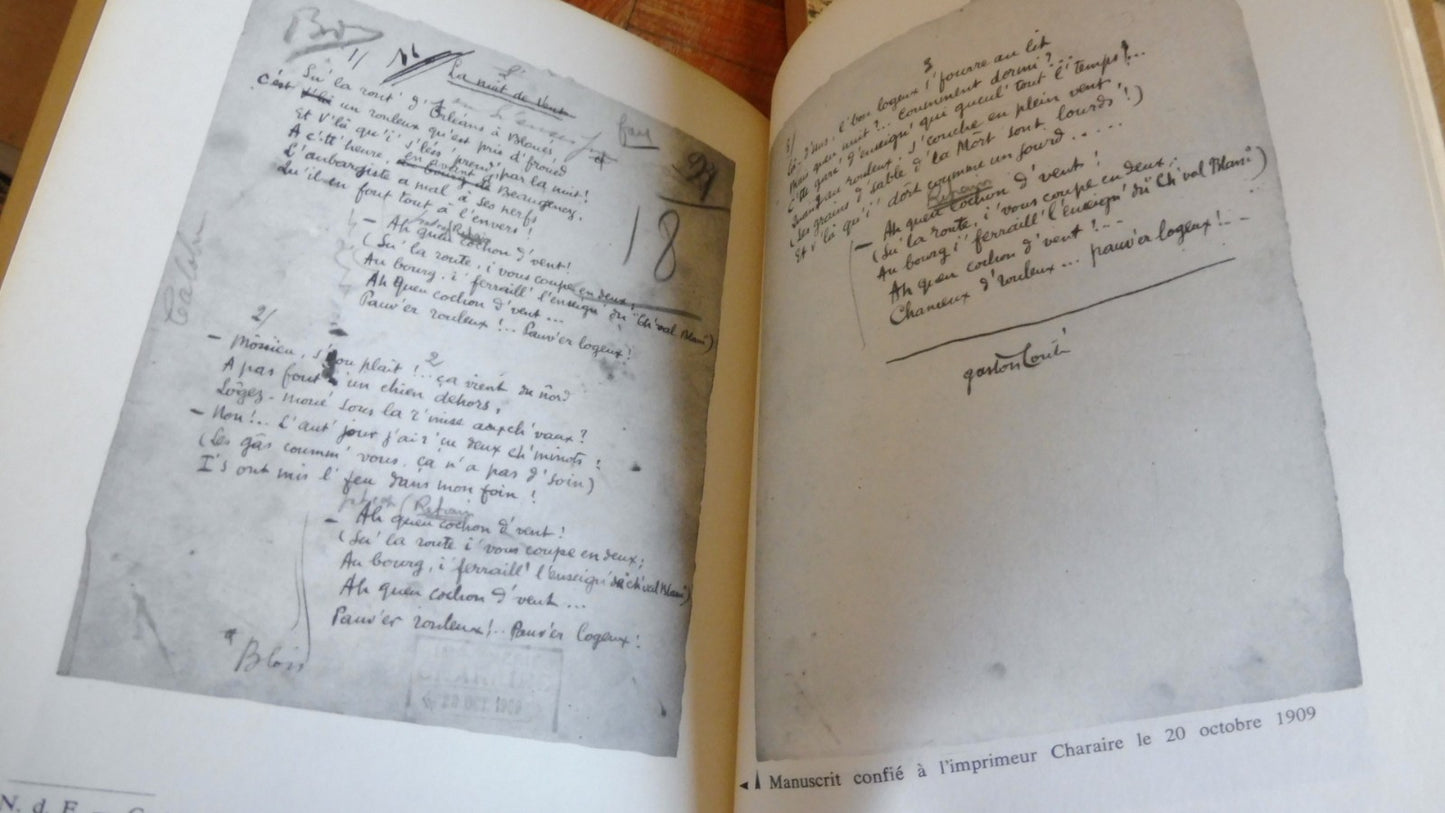 Bon
1/ N°
La nuit de Vent
Su' la rout' d'Orléans à Blouès
C'est un rouleux qu'est pris d'froued
Et v'là qu'i' s'lées' prend' par la nuit!
A c'tt' heure, en avant d' Beaugency,
L'aubargiste a mal à ses nerfs
Qu'il en fout tout à l'envers!
18
Refrain
— Ah queu cochon d'vent!
(Su' la route, i' vous coupe en deux;
Au bourg, i' ferraill' l'enseign' du "Ch'val Blanc")
Ah queu cochon d'vent...
Pauv'er rouleux!.. Pauv'er logeux!
2/
2
— Môssieu, s'ou plaît!.. ça vient du nôrd
A pas fout' un chien dehors,
Lôgez-moué sous la r'mise aux ch'vaux?
— Non!.. L'aut' jour j'ai r'çu deux ch'minots!
(Les gâs coumm' vous, ça n'a pas d'soin)
I's ont mis l'feu dans mon foin!
(Refrain
— Ah queu cochon d'vent!
(Su' la route i' vous coupe en deux;
Au bourg, i' ferraill' l'enseign' du "ch'val Blanc")
Ah queu cochon d'vent...
Pauv'er rouleux!.. Pauv'er logeux!
Blois
3
3/
Là-d'ssus, l'bon logeux s'fourre au lit
Mais queu nuit?.. Coumment dormi?...
C'tte gars' d'enseign' qui gueul' tout l'temps!...
Quant au rouleux, i' s'couche en plein vent
(Les grains d'sable d'la Môrt sont lourds!)
Et v'là qu'i' dôrt coumme un sourd.....
Refrain
— Ah queu cochon d'vent!
(Su' la route, i' vous coupe en deux;
Au bourg i' ferraill' l'enseign' du "Ch'val Blanc")
Ah queu cochon d'vent!..
Chanceux d'rouleux... pauv'er logeux!..
gaston Couté
Manuscrit confié à l'imprimeur Charaire le 20 octobre 1909
N. d. E.